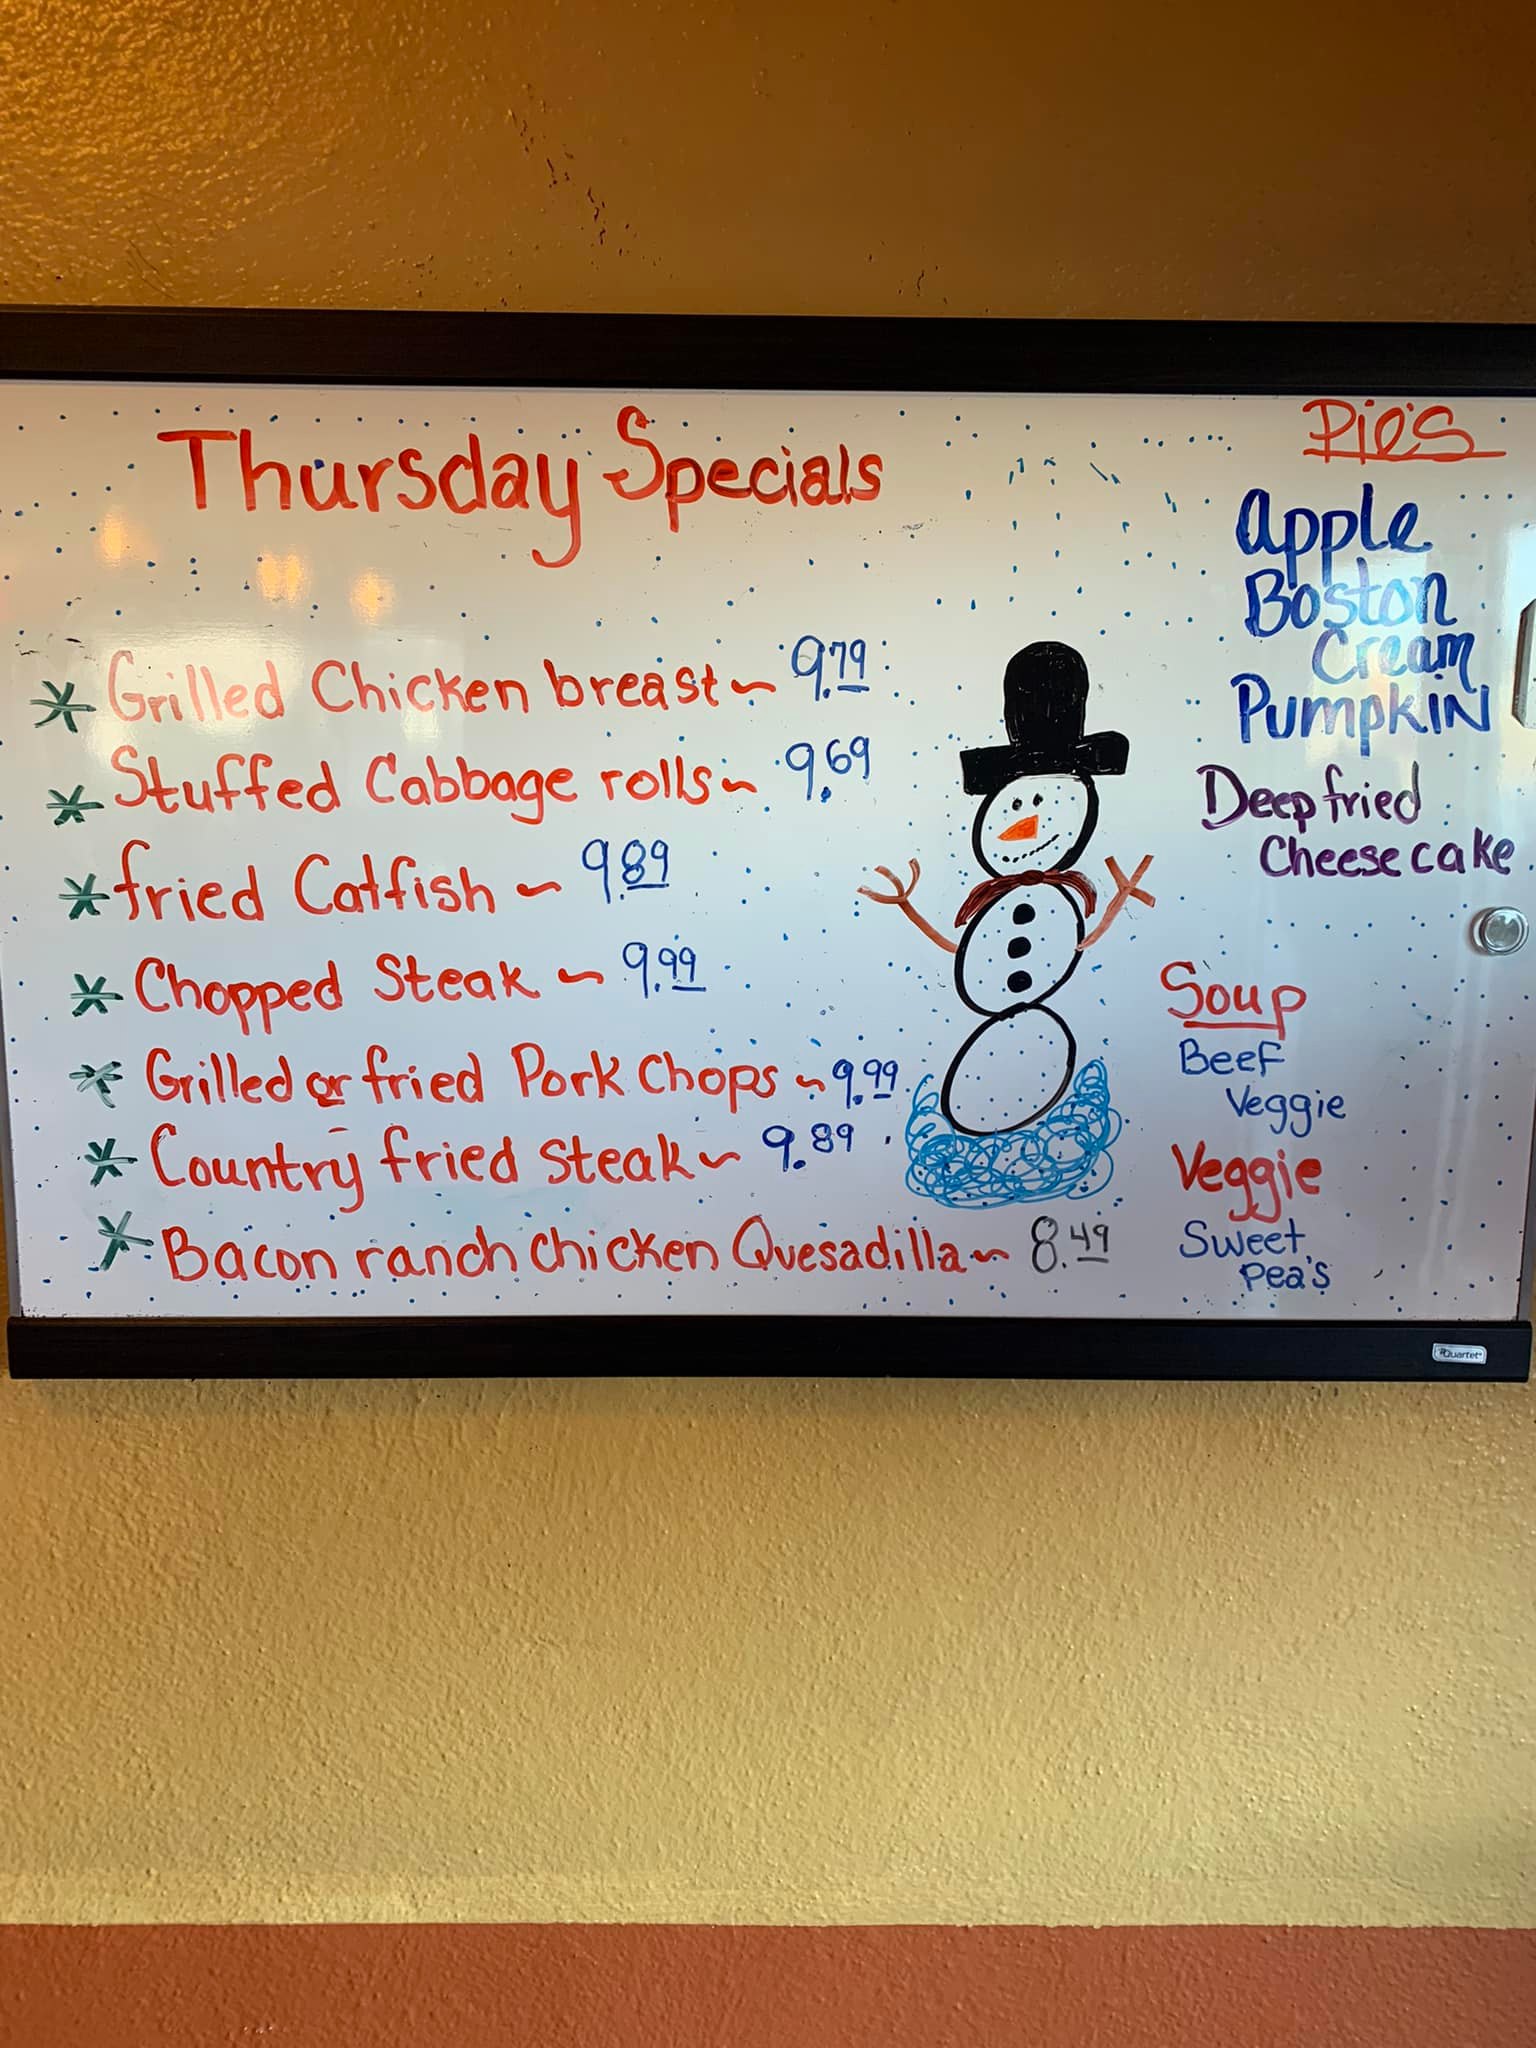 Thursday Specials
* Grilled Chicken breast ~ 9.79
* Stuffed Cabbage rolls ~ 9.69
* fried Catfish ~ 9.89
* Chopped Steak ~ 9.99
* Grilled or fried Pork Chops ~ 9.99
* Country fried steak ~ 9.89
* Bacon ranch chicken Quesadilla ~ 8.49
Pie's
Apple
Boston
Cream
PumpKiN
Deep fried
Cheese cake
Soup
Beef
Veggie
Veggie
Sweet
Pea's
Quartet